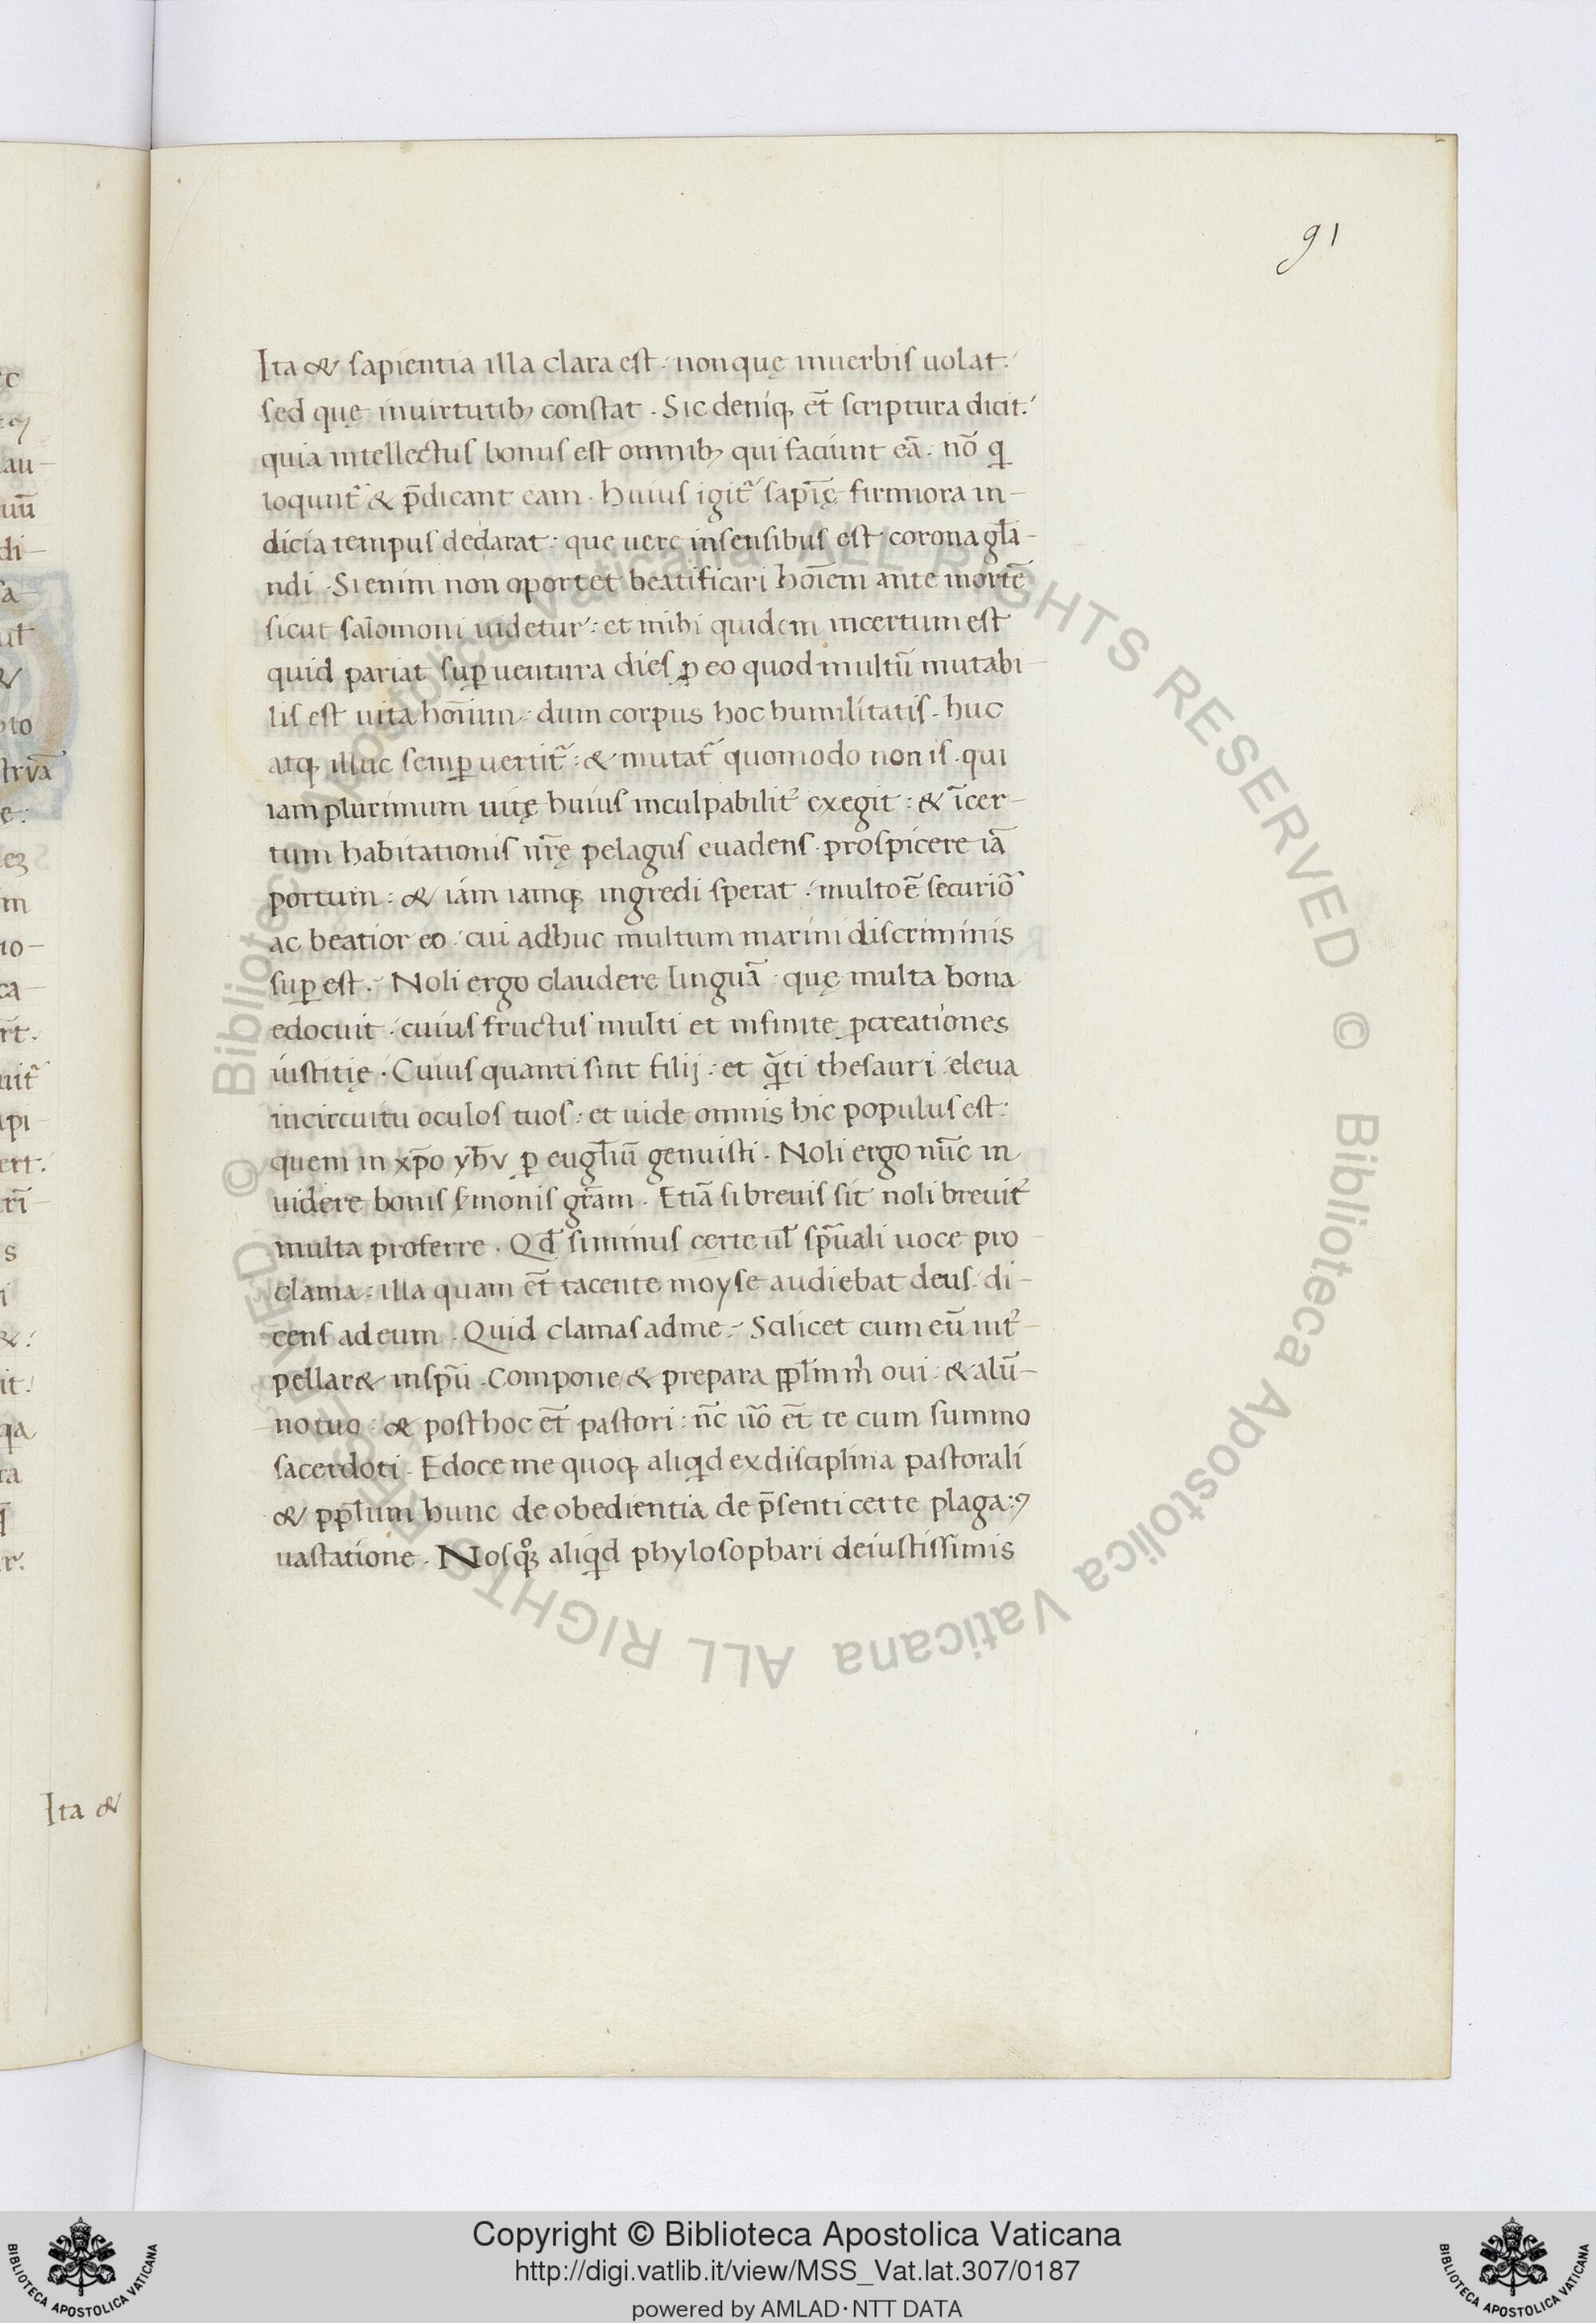 91
Ita & sapientia illa clara est: non quę inuerbis uolat:
sed quę inuirtutibꝫ constat. Sic deniqꝫ et̄ scriptura dicit:
quia intellectus bonus est omnibꝫ qui faciunt eā. nō ꝗ
loqunt᷑ & p̄dicant eam. huius igit᷑ sapīę firmiora in-
dicia tempus declarat: que uere insensibus est corona gl̄a-
ndi. Si enim non oportet beatificari hoīem ante mortē
sicut salomoni uidetur: et mihi quidem incertum est
quid pariat suꝑuentura dies ꝑ eo quod multū mutabi-
lis est uita hoīnum: dum corpus hoc humilitatis. huc
atqꝫ illuc semꝑ uertit᷑: & mutat᷑ quomodo non is. qui
iam plurimum uitę huius inculpabilit᷑ exegit: & īcer-
tum habitationis nr̄ę pelagus euadens. prospicere iā
portum: & iam iamqꝫ ingredi sperat: multo ē securiō
ac beatior eo: cui adhuc multum marini discriminis
suꝑest. Noli ergo claudere linguā: quę multa bona
edocuit: cuius fructus multi et infinite ꝓcreationes
iustitię. Cuius quanti sint filij: et ꝗ̄ti thesauri eleua
incircuitu oculos tuos: et uide omnis hic populus est:
quem in xp̄o yh̄v ꝑ eugl̄iū genuisti. Noli ergo nūc in
uidere bonis s̄monis gr̄am. Etiā si breuis sit noli breuit᷑
multa proferre. Qd̄ sinimus certe ul̄ sp̄uali uoce pro
clama: illa quam et̄ tacente moyse audiebat deus. di-
cens ad eum. Quid clamas ad me. Scilicet cum eū int᷑-
pellar& insp̄u. Compone & prepara pp̄lm m̄ oui: & alū-
no tuo: & post hoc et̄ pastori: nc̄ uō et̄ te cum summo
sacerdoti. Edoce me quoqꝫ aliꝗd ex disciplina pastorali
& pp̄lum hunc de obedientia de p̄senti certe plaga: ⁊
uastatione. Nosqꝫ aliꝗd phylosophari de iustissimis
Ita &
Copyright © Biblioteca Apostolica Vaticana
http://digi.vatlib.it/view/MSS_Vat.lat.307/0187
powered by AMLAD·NTT DATA